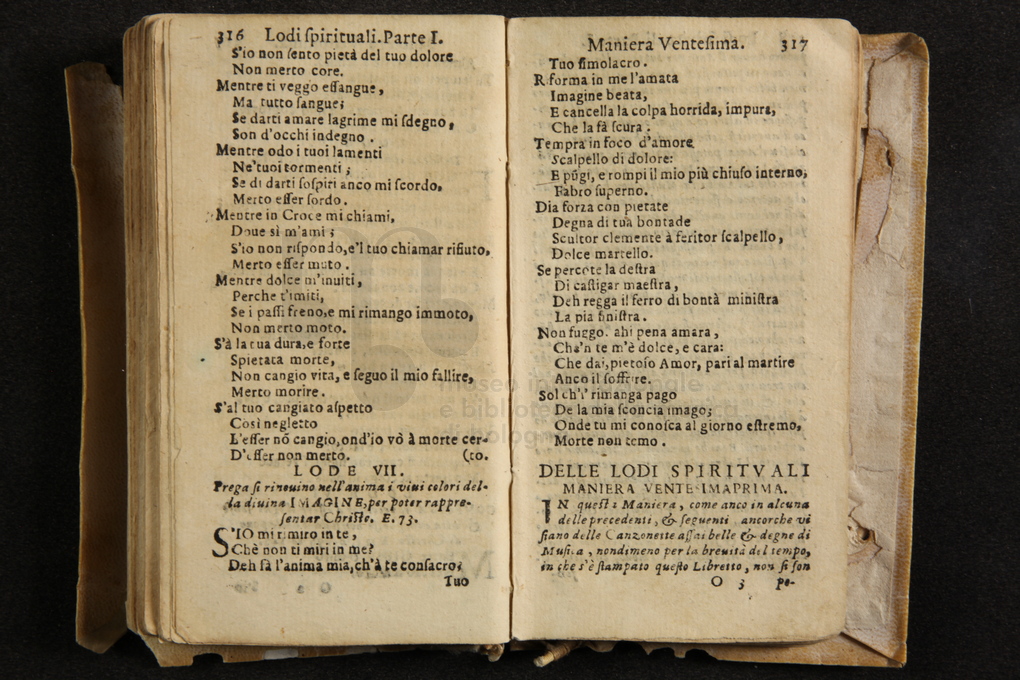 316 Lodi ſpirituali. Parte I.
S'io non ſento pietà del tuo dolore
Non merto core.
Mentre ti veggo eſſangue,
Ma tutto ſangue;
Se darti amare lagrime mi ſdegno,
Son d'occhi indegno.
Mentre odo i tuoi lamenti
Ne'tuoi tormenti;
Se di darti ſoſpiri anco mi ſcordo,
Merto eſſer ſordo.
Mentre in Croce mi chiami,
Doue sì m'ami;
S'io non riſpondo, e'l tuo chiamar rifiuto,
Merto eſſer muto.
Mentre dolce m'inuiti,
Perche t'imiti,
Se i paſſi freno, e mi rimango immoto,
Non merto moto.
S'à la tua dura, e forte
Spietata morte,
Non cangio vita, e ſeguo il mio fallire,
Merto morire.
S'al tuo cangiato aſpetto
Così negletto
L'eſſer nō cangio, ond'io vò à morte cer-
D'eſſer non merto. (to.
LODE VII.
Prega ſi rinouino nell'anima i viui colori del-
la diuina IMAGINE, per poter rappre-
ſentar Chriſto. E. 73.
S'IO mi rimiro in te,
Chè non ti miri in me?
Deh fà l'anima mia, ch'à te conſacro;
Tuo
Maniera Venteſima. 317
Tuo ſimolacro.
Riforma in me l'amata
Imagine beata,
E cancella la colpa horrida, impura,
Che la fà ſcura.
Tempra in foco d'amore
Scalpello di dolore:
E pūgi, e rompi il mio più chiuſo interno;
Fabro ſuperno.
Dia forza con pietate
Degna di tua bontade
Scultor clemente à feritor ſcalpello,
Dolce martello.
Se percote la deſtra
Di caſtigar maeſtra,
Deh regga il ferro di bontà miniſtra
La pia ſiniſtra.
Non fuggo. ahi pena amara,
Ch'n te m'è dolce, e cara:
Che dai, pietoſo Amor, pari al martire
Anco il ſoffrire.
Sol ch'i' rimanga pago
De la mia ſconcia imago;
Onde tu mi conoſca al giorno eſtremo,
Morte non temo.
DELLE LODI SPIRITVALI
MANIERA VENTESIMAPRIMA.
IN queſta Maniera, come anco in alcuna
delle precedenti, & ſeguenti ancorche vi
ſiano delle Canzonette aſſai belle & degne di
Muſica, nondimeno per la breuità del tempo,
in che s'è ſtampato queſto Libretto, non ſi ſon
O 3 po-